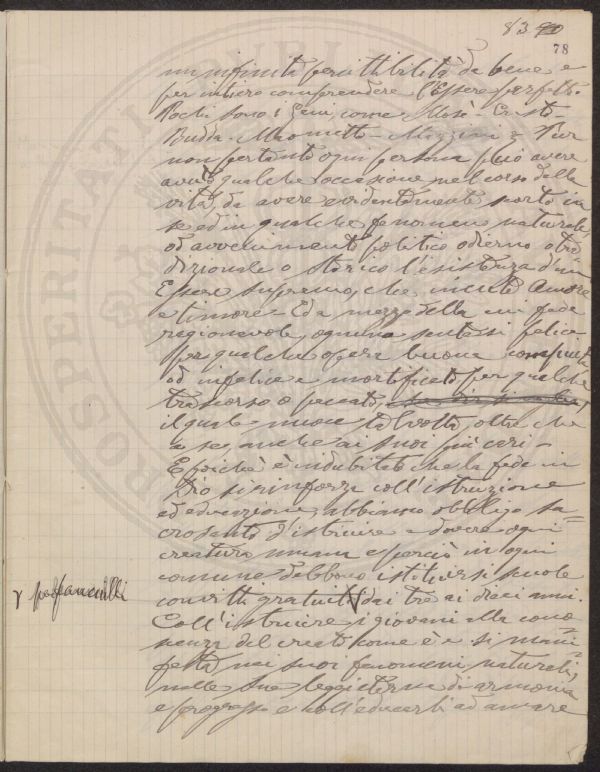 83 90
78
un'infinità perfettibilità da bene e
per intiero comprendere l'Essere perfetto.
Pochi sono i Geni, come Mosè - Cristo -
Budda - Maometto - Mazzini - Pur
non pertanto ogni persona può avere
avuto qualche occasione, nel corso della
vita, da avere evidentemente scorto in
se ed in qualche fenomeno naturale,
od avvenimento politico odierno o tra
dizionale o storico l'esistenza d'un
Essere supremo, che incute amore
e timore - Ed a mezzo della mi fede
ragionevole, ognuno sente si felice
per qualche opera buona compiuta
od infelice e mortificato per qualche
trascorso o peccato,
il quale nuoce talvolta, oltre che
a se, anche ai suoi più cari -
E poichè è indubitato che la fede in
Dio si rinforza coll'istruzione
ed educazione, abbiamo obbligo sa=
crosanto d'istruire e dovere ogni
creatura umana e perciò in ogni
comune debbono istituirsi scuole
convitti gratuiti dai tre ai dieci anni.
pei fanciulli
Coll'istruire i giovani alla cono=
scenza del creato come è e si mani=
festa nei suoi fenomeni naturali,
nelle sue leggi eterne di armonia
e progresso e coll'educarli ad amare
PROSPERITATI